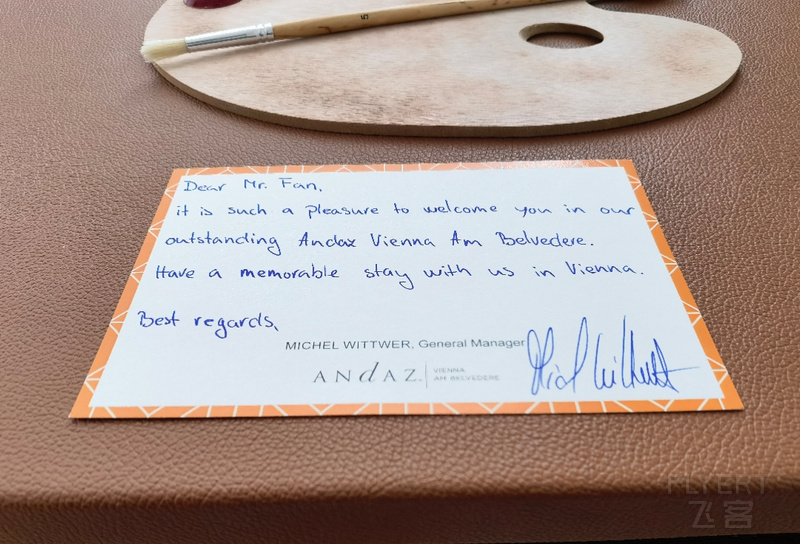 5
Dear Mr. Fan,
it is such a pleasure to welcome you in our
outstanding Andaz Vienna Am Belvedere.
Have a memorable stay with us in Vienna.
Best regards,
MICHEL WITTWER, General Manager
ANdAZ. VIENNA
AM BELVEDERE
FLYERT
飞客